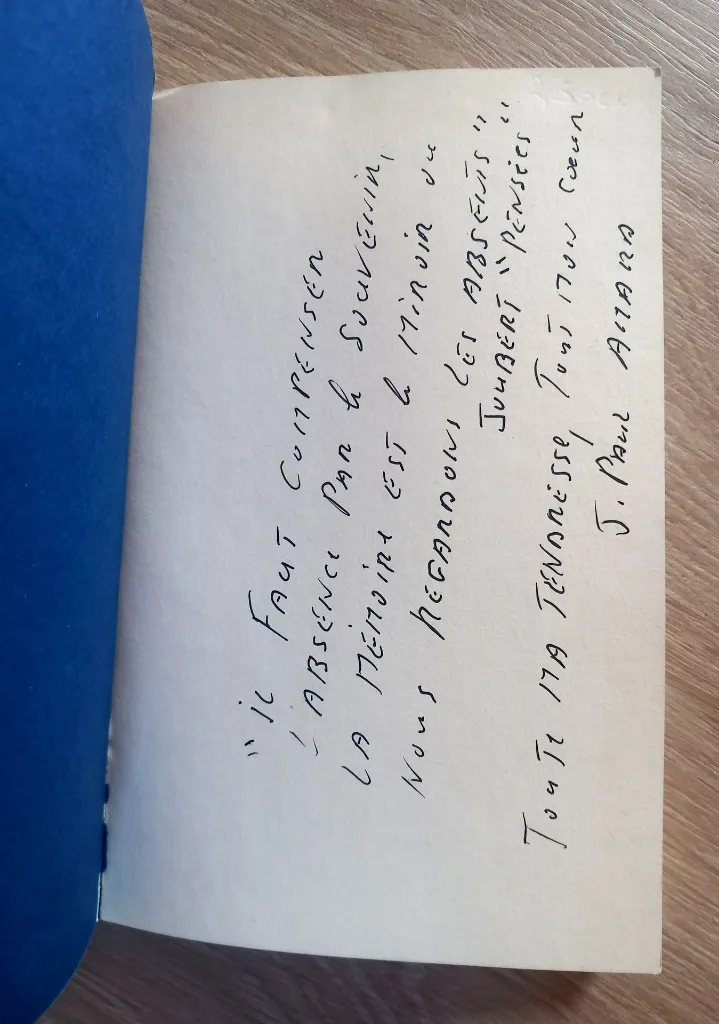 "IL FAUT COMPENSER
L'ABSENCE PAR le SOUVENIR,
LA MÉMOIRE EST le MIROIR OU
NOUS REGARDONS LES ABSENTS"
JOUBERT "PENSÉES"
TOUTE MA TENDRESSE, TOUT MON CŒUR
J. PAUL AMARA